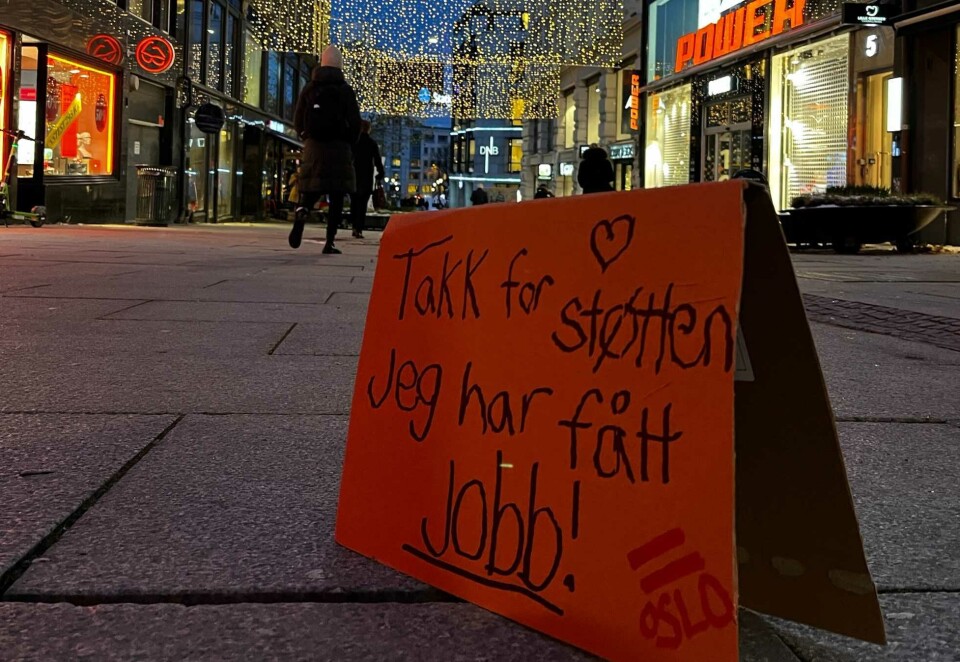 POWER
5
DNB
POWER
Takk for
støtten
Jeg har fått
Jobb!
OSLO